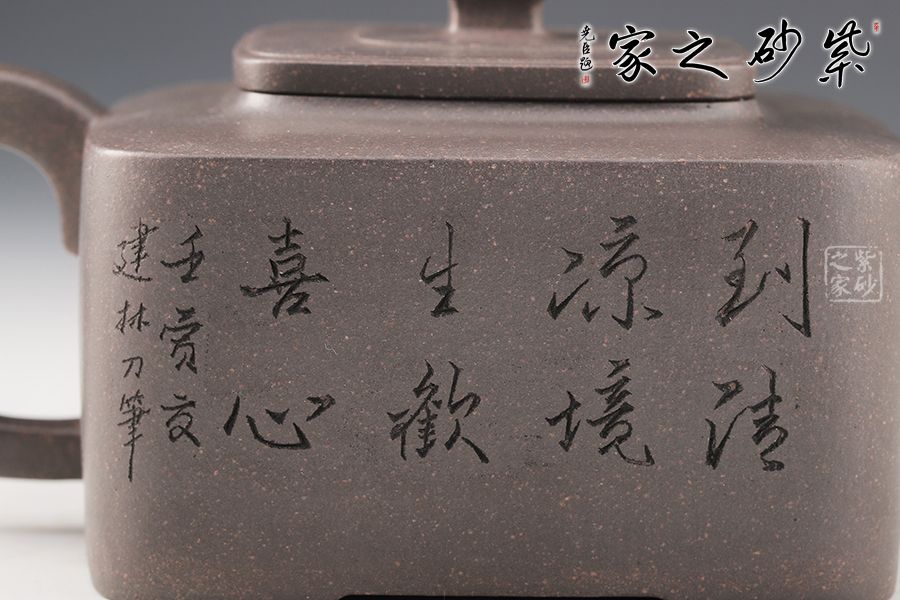 紫砂之家
尧臣题
到清
凉境
生歡
喜心
壬寅夏
建林刀筆
紫砂
之家